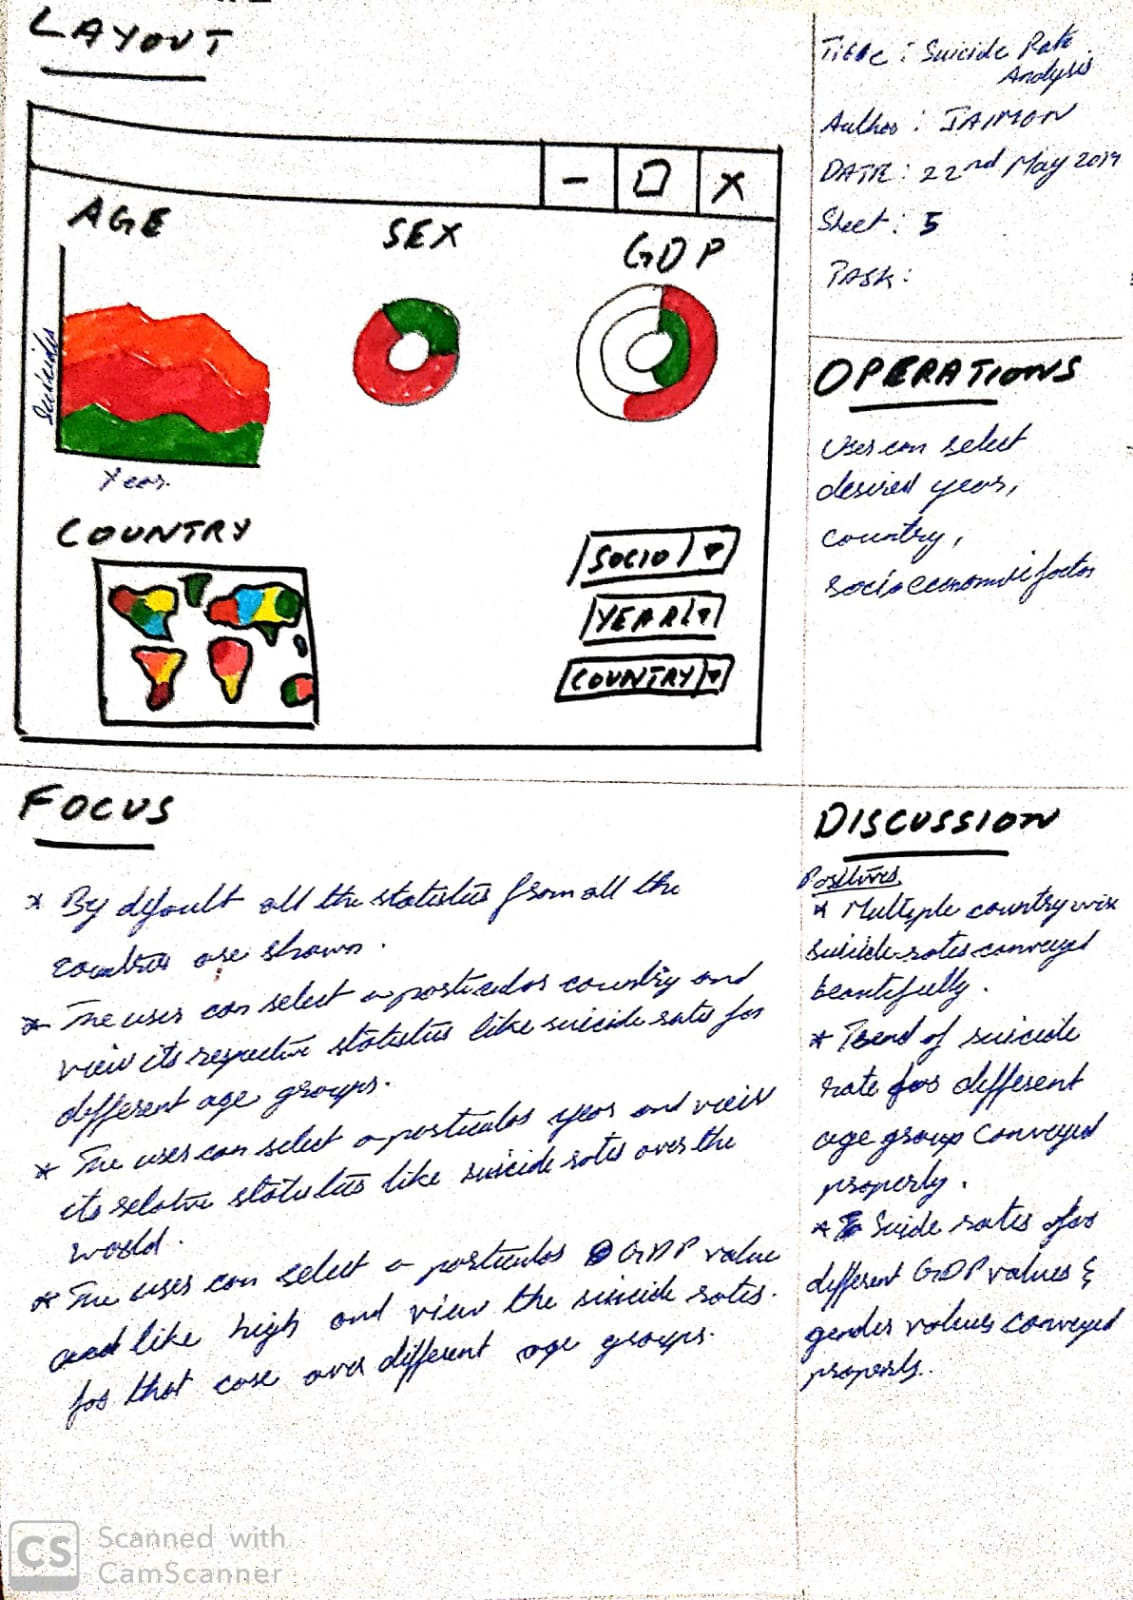 LAYOUT
Title : Suicide Rate
Analysis
Author : JAIMON
DATE : 22nd May 2019
Sheet : 5
TASK :
- X
AGE
SEX
GDP
Suicides
Year
COUNTRY
SOCIO
YEAR
COUNTRY
OPERATIONS
User can select
desired year,
country,
socioeconomic factor
FOCUS
* By default all the statistics from all the
countries are shown.
* The user can select a particular country and
view its respective statistics like suicide rates for
different age groups.
* The user can select a particular year and view
its relative statistics like suicide rates over the
world.
* The user can select a particular GDP value
like high and view the suicide rates.
for that case over different age groups.
DISCUSSION
Positives
* Multiple country wise
suicide rates conveyed
beautifully.
* Trend of suicide
rate for different
age group conveyed
properly.
* Suide rates for
different GDP values &
gender values conveyed
properly.
CS Scanned with
CamScanner